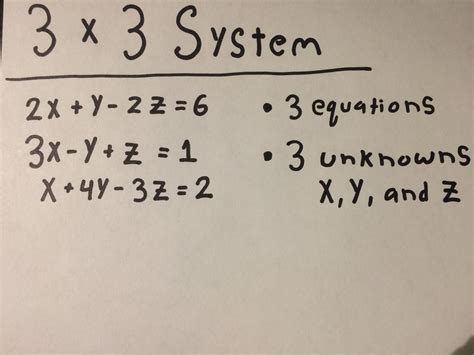 3 x 3 System
2x + y - 2z = 6
3x - y + z = 1
x + 4y - 3z = 2
• 3 equations
• 3 unknowns
x, y, and z